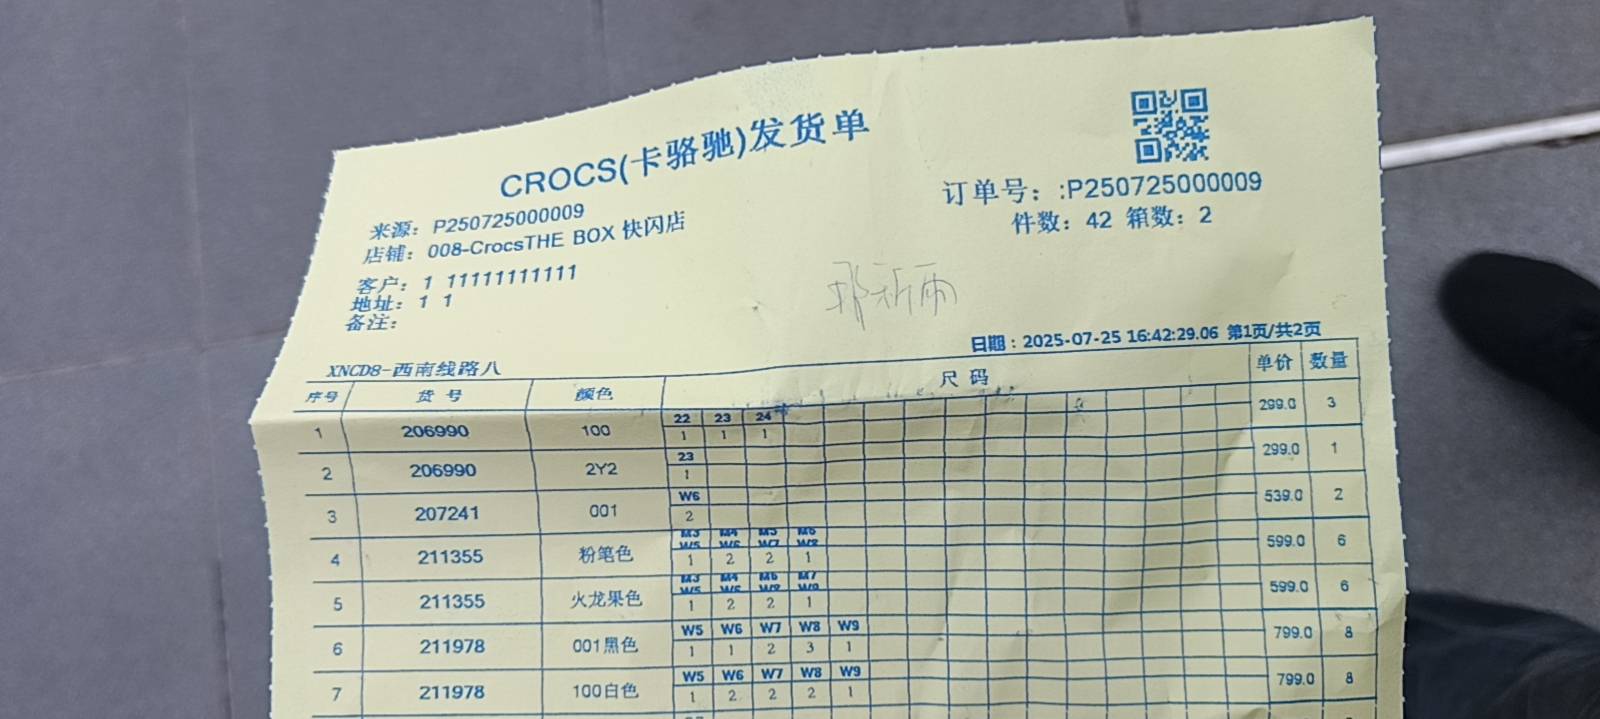 CROCS(卡骆驰)发货单
订单号：:P250725000009
件数：42 箱数：2
来源：P250725000009
店铺：008-CrocsTHE BOX 快闪店
客户：1 11111111111
地址：1 1
备注：
日期：2025-07-25 16:42:29.06 第1页/共2页
XNCD8-西南线路八
序号 货号 颜色 尺码 单价 数量
22 23 24
1 206990 100 1 1 1 299.0 3
23
2 206990 2Y2 1 299.0 1
W6
3 207241 001 2 539.0 2
M3 M4 M5 M6
W5 W6 W7 W8
4 211355 粉笔色 1 2 2 1 599.0 6
M3 M4 M6 M7
W5 W6 W8 W9
5 211355 火龙果色 1 2 2 1 599.0 6
W5 W6 W7 W8 W9
6 211978 001黑色 1 1 2 3 1 799.0 8
W5 W6 W7 W8 W9
7 211978 100白色 1 2 2 2 1 799.0 8